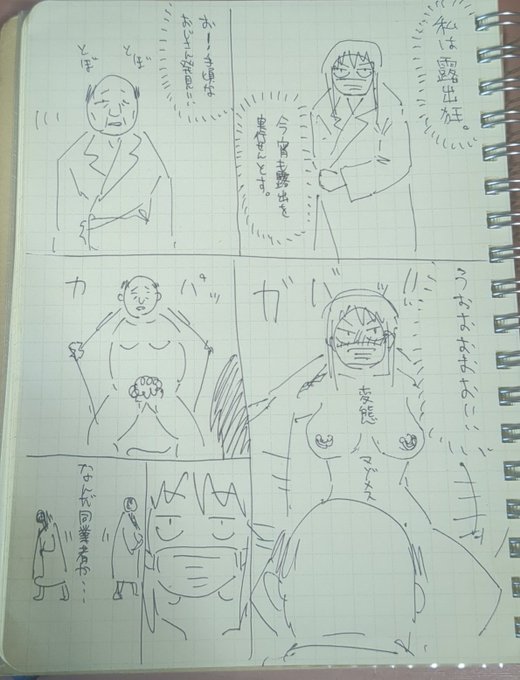 私は露出狂。
今宵も露出を
実行せんとす。
お—手頃な
おじさん発見い…
とぼ
とぼ
ガバ
変態
マゾメス
ガ
バッ
なんだ同業者か…